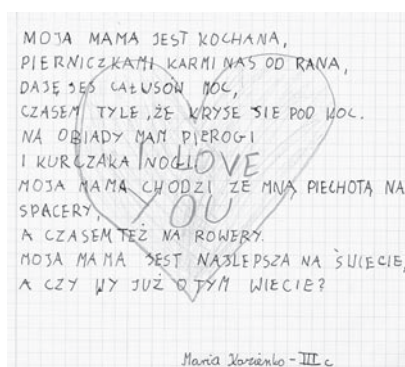 MOJA MAMA JEST KOCHANA,
PIERNICZKAMI KARMI NAS OD RANA,
DAJĘ JEJ CAŁUSÓW MOC,
CZASEM TYLE, ŻE KRYJE SIE POD KOC.
NA OBIADY MAM PIEROGI
I KURCZAKA NOGI.
I LOVE
YOU
MOJA MAMA CHODZI ZE MNĄ PIECHOTĄ NA
SPACERY,
A CZASEM TEŻ NA ROWERY.
MOJA MAMA JEST NAJLEPSZA NA ŚWIECIE,
A CZY WY JUŻ O TYM WIECIE?
Maria - III c